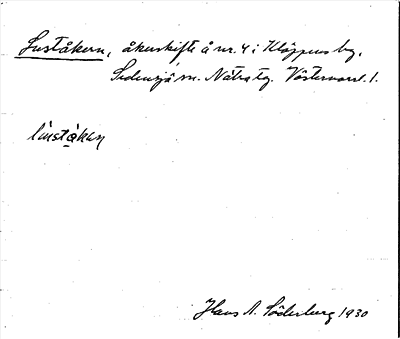 Luståkern, åkerskifte å nr. 4 i Kläppens by,
Sidensjö sn. Nätra tg. Västernorrl. l.
lùståkeṇ
Hans A. Söderberg 1930